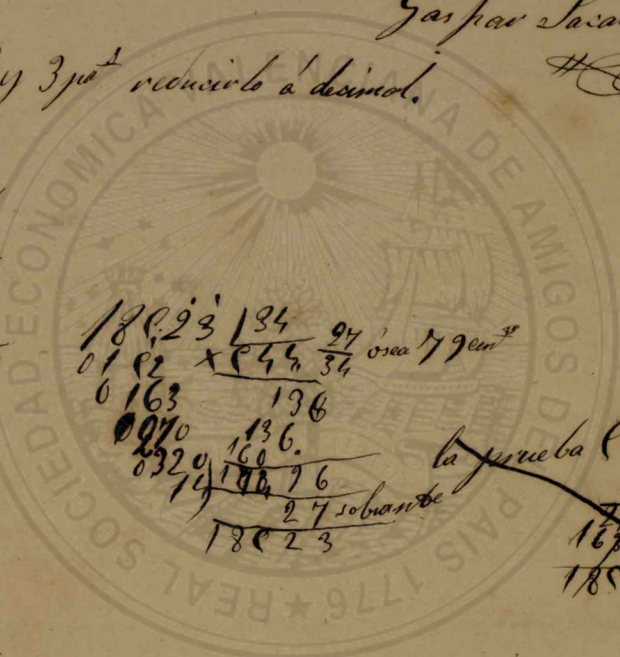 Gaspar
y 3 reducirlo á decimal.
18523 34
0152 x 544 27/34 ósea 79 cent
0163 136
0270 136.
0320
14 18496
27 sobrante
18523
la prueba
REAL SOCIEDAD ECONOMICA VALENCIANA DE AMIGOS DEL PAIS 1776